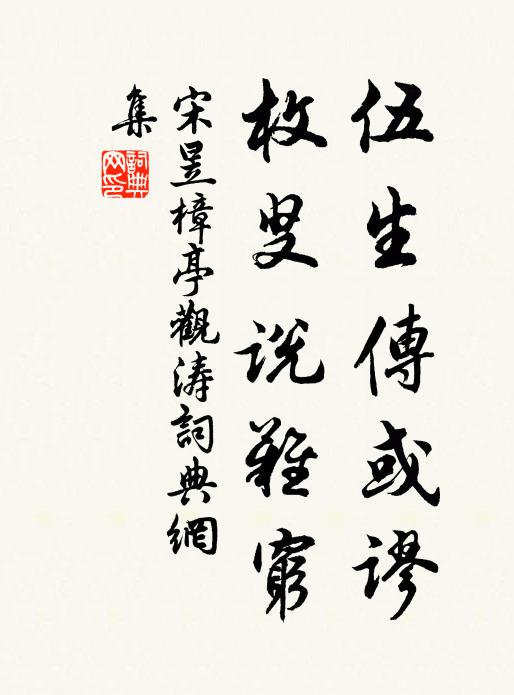 伍生傳或謬
枚叟説難窮
宋昱樟亭觀濤詞典網
集
詞典网印